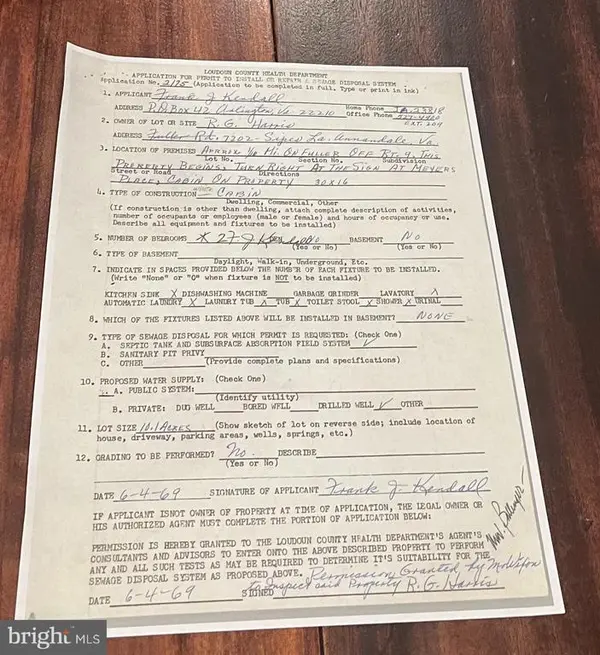 LOUDOUN COUNTY HEALTH DEPARTMENT
APPLICATION FOR PERMIT TO INSTALL OR REPAIR A SEWAGE DISPOSAL SYSTEM
Application No. 2175 (Application to be completed in full. Type or print in ink)
1. APPLICANT Frank J Kendall
ADDRESS P.O. Box 42 Arlington, Va 22210 Home Phone
Office Phone
EXT. 204
2. OWNER OF LOT OR SITE R. G. Harris
ADDRESS Fuller Rd. 7202 Sipes La. Annandale Va
3. LOCATION OF PREMISES Approx 1/2 Mi. On Fuller Off Rt. 9. This
Lot No. Section No. Subdivision
Property Begins, Turn Right At The Sign At Meyers
Street or Road Directions
Place, Cabin On Property 30x16
4. TYPE OF CONSTRUCTION Cabin
Dwelling, Commercial, Other
(If construction is other than dwelling, attach complete description of activities,
number of occupants or employees (male or female) and hours of occupancy or use.
Describe all equipment and fixtures to be installed)
5. NUMBER OF BEDROOMS X 2 BASEMENT No
(Yes or No) (Yes or No)
6. TYPE OF BASEMENT
Daylight, Walk-in, Underground, Etc.
7. INDICATE IN SPACES PROVIDED BELOW THE NUMBER OF EACH FIXTURE TO BE INSTALLED.
(Write "None" or "0" when fixture is NOT to be installed)
KITCHEN SINK X DISHWASHING MACHINE GARBAGE GRINDER LAVATORY X
AUTOMATIC LAUNDRY X LAUNDRY TUB X TUB X TOILET STOOL X SHOWER X URINAL
8. WHICH OF THE FIXTURES LISTED ABOVE WILL BE INSTALLED IN BASEMENT? NONE
9. TYPE OF SEWAGE DISPOSAL FOR WHICH PERMIT IS REQUESTED: (Check One)
A. SEPTIC TANK AND SUBSURFACE ABSORPTION FIELD SYSTEM ✓
B. SANITARY PIT PRIVY
C. OTHER (Provide complete plans and specifications)
10. PROPOSED WATER SUPPLY: (Check One)
A. PUBLIC SYSTEM:
(Identify utility)
B. PRIVATE: DUG WELL BORED WELL DRILLED WELL ✓ OTHER
11. LOT SIZE 10.1 Acres (Show sketch of lot on reverse side; include location of
house, driveway, parking areas, wells, springs, etc.)
12. GRADING TO BE PERFORMED? No. DESCRIBE
(Yes or No)
DATE 6-4-69 SIGNATURE OF APPLICANT Frank J. Kendall
IF APPLICANT ISNOT OWNER OF PROPERTY AT TIME OF APPLICATION, THE LEGAL OWNER OR
HIS AUTHORIZED AGENT MUST COMPLETE THE PORTION OF APPLICATION BELOW:
PERMISSION IS HEREBY GRANTED TO THE LOUDOUN COUNTY HEALTH DEPARTMENT'S AGENT'S
CONSULTANTS AND ADVISORS TO ENTER ONTO THE ABOVE DESCRIBED PROPERTY TO PERFORM
ANY AND ALL SUCH TESTS AS MAY BE REQUIRED TO DETERMINE IT'S SUITABILITY FOR THE
SEWAGE DISPOSAL SYSTEM AS PROPOSED ABOVE. Permission Granted by
to Inspect said Property R. G. Harris
DATE 6-4-69 SIGNED
bright MLS